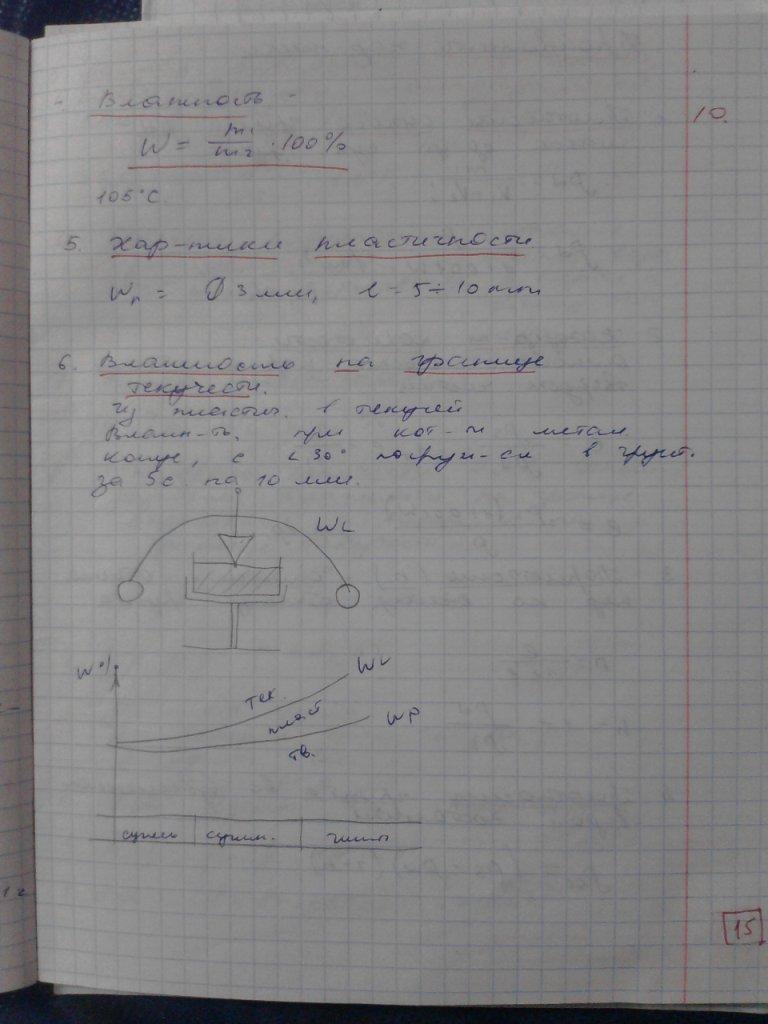 - Влажность -
10.
W = m1/m2 · 100%
105°С
5. Хар-тики пластичности
Wp = ∅ 3 мм, l = 5÷10 mm
6. Влажность на границе
текучести.
Из пластич. в текучей
Влажн-ть, при кот-й метал
конус, с ∠30° погруж-ся в грунт.
за 5с. на 10 мм.
WL
W%
WL
тек.
пласт
WP
тв.
супесь суглин. глины
15